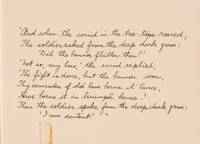 "And when the wind in the tree-tops roared,
The soldier asked from the deep dark grave:
"Did the banner flutter then?"
"Not so, my hero," the wind replied,
"The fight is done, but the banner won,
Thy comrades of old have borne it hence,
Have borne it in triumph hence."
Then the soldier spake from the deep dark grave:
"I am content."